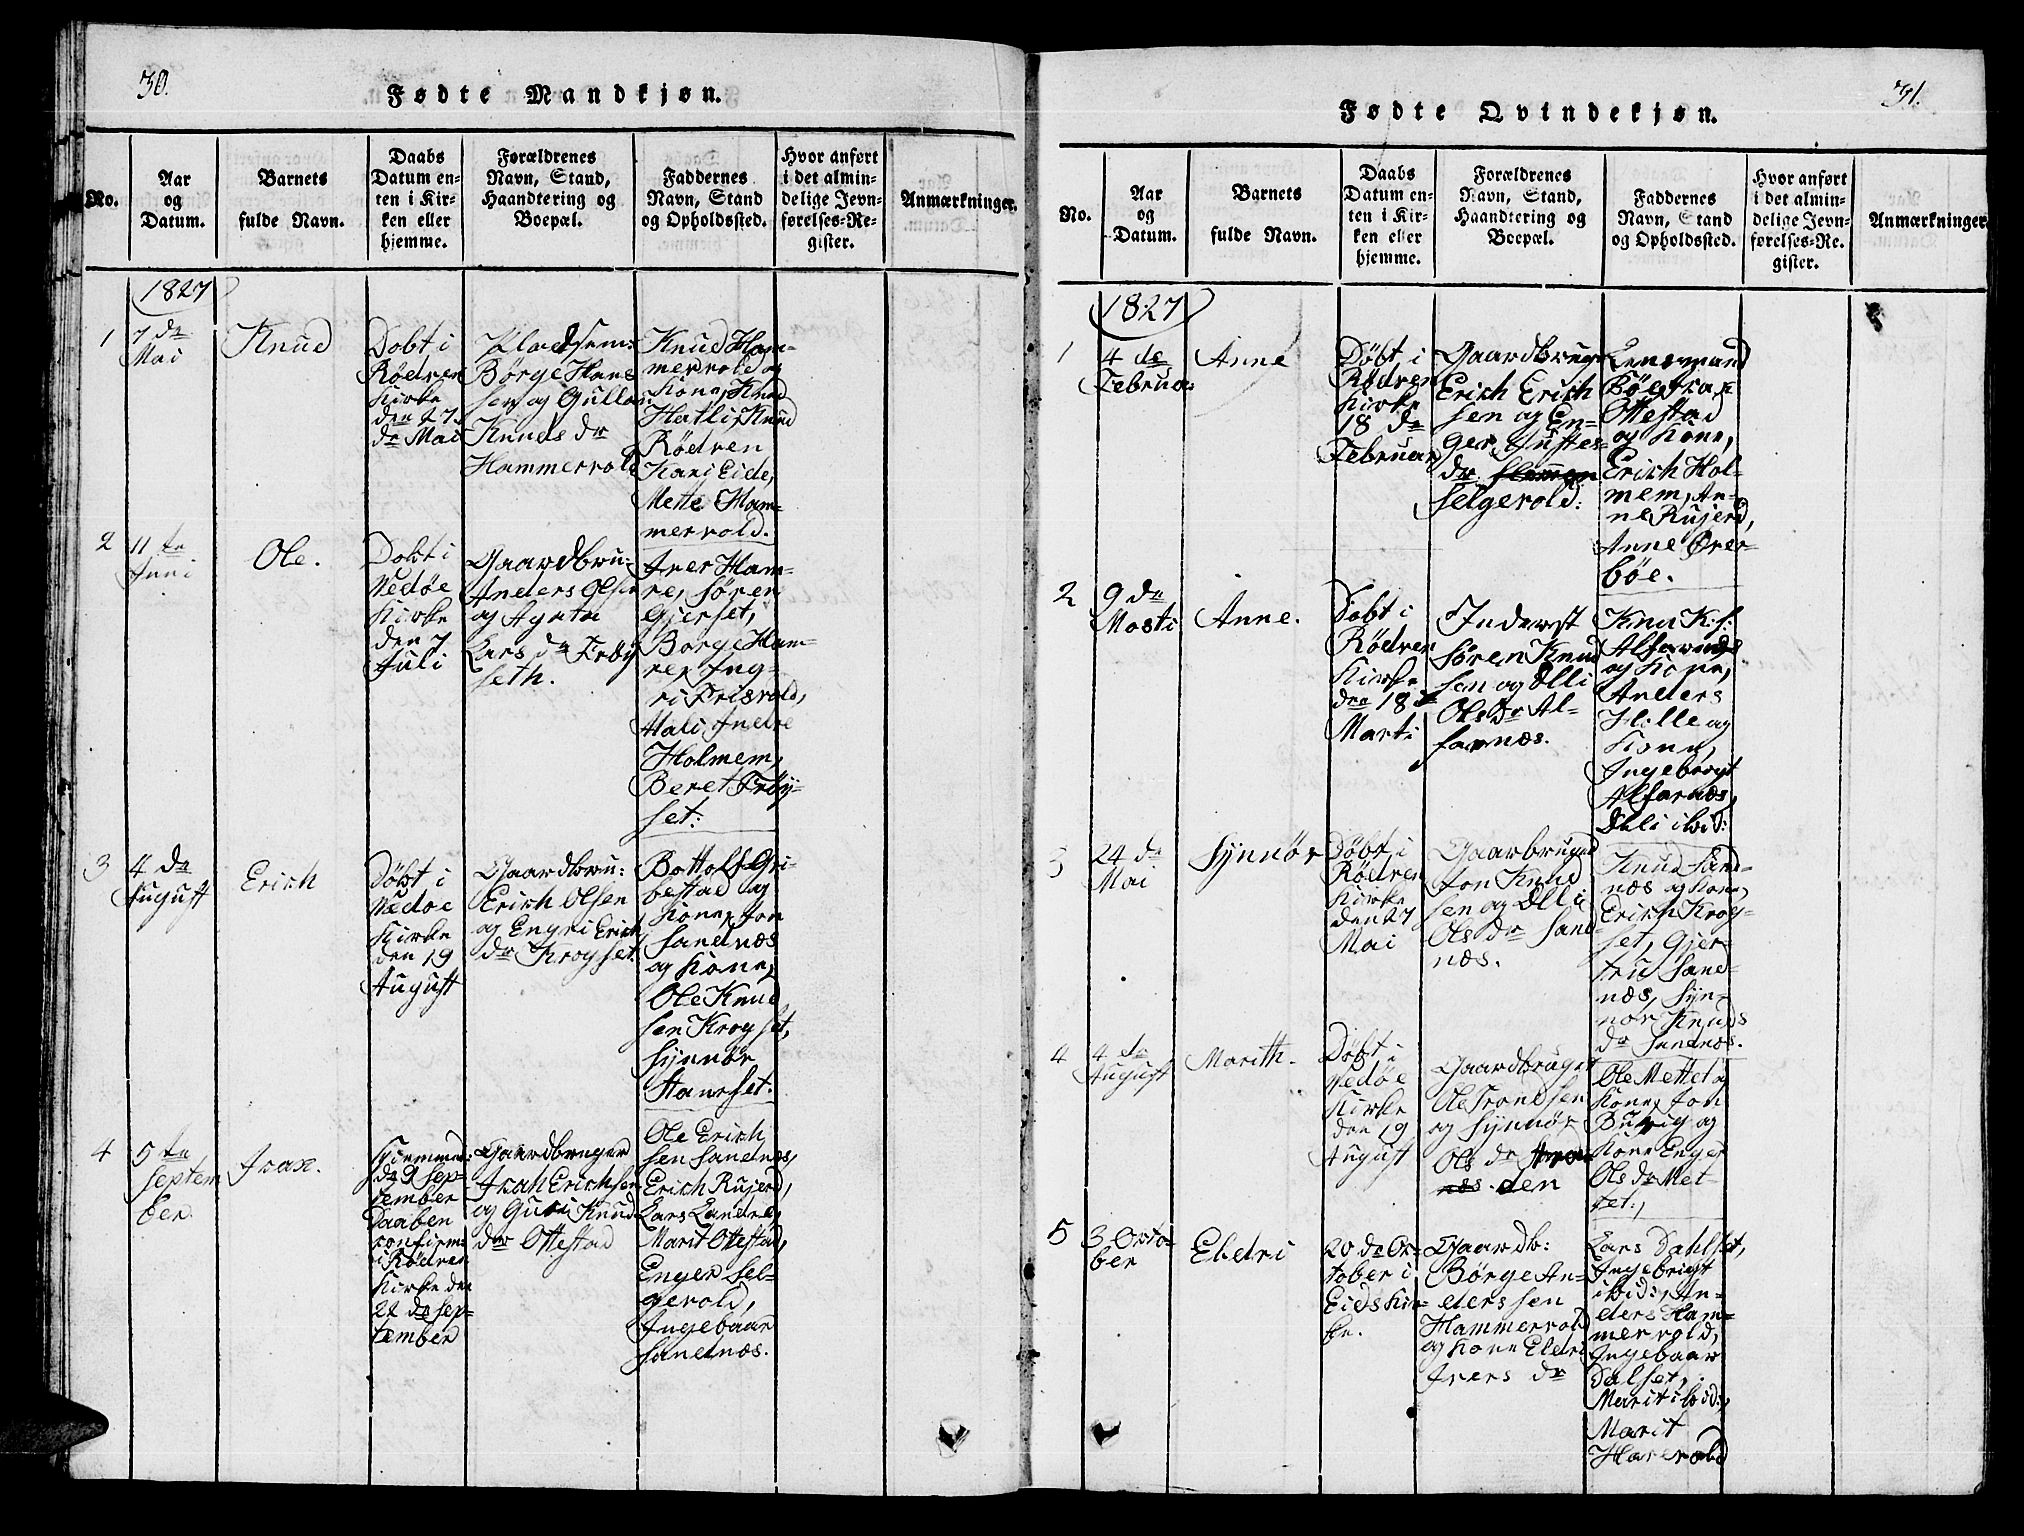 30.
Fødte Mandkjøn.
No.
Aar
og
Datum.
Barnets
fulde Navn.
Daabs
Datum en-
ten i Kir-
ken eller
hjemme.
Forældrenes
Navn, Stand,
Haandtering og
Boepæl.
Faddernes
Navn, Stand
og Opholdssted.
Hvor anført
i det almin-
delige Jevn-
førelses-Re-
gister.
Anmærkninger.
1827
1
7 de
Mai
Knud
Dobt i
Rødven
Kirke
den 27
de Mai
Pladsem:
Børge Hans
sen og Gullau
Knuds dr
Hammervold
Knud Ham-
mervold og
Kone, Knud
Hatli, Knud
Rødven
Kari Eide,
Mette Ham-
mervold.
2
11 te
Juni
Ole.
Dobt i
Vedøe
Kirke
den 7
Juli
Gaardbru:
Anders Olsen
og Agnta
Lars dr Frøy
seth.
Iver Ham-
re, Søren
Gjerset,
Borge Ham-
re, Ing-
ri Frisvold,
Mali Indre
Holmem,
Beret Frøy-
set:
3
4 de
August
Erich
Døbt i
Vedøe
Kirke
den 19
August
Gaardbru:
Erich Olsen
og Engri Erich
dr Kroyset
Bottolf Gri-
bestad og
Kone, Jon
Sandnæs
og Kone,
Ole Knud
sen Kroyset,
Synnør
Stanset:
4
5 te
Septem
ber.
Isax.
Hjemmed:
d 9 Sep-
tember
Daaben
confirm:
i Rødven
Kirke den
22 de Sep-
tember
Gaardbruger
Isah Erichsen
og Guri Knud
dr Ottestad
Ole Erich
sen Sandnæs,
Erich Rujerd,
Lars Landre,
Marit Ottestad,
Enger Sel-
gervold,
Ingebaar
Sandnæs.
31.
Fødte Qvindekjøn.
No.
Aar
og
Datum.
Barnets
fulde Navn.
Daabs
Datum en-
ten i Kir-
ken eller
hjemme.
Forældrenes
Navn, Stand,
Haandtering og
Boepæl.
Faddernes
Navn, Stand
og Opholdssted.
Hvor anført
i det almin-
delige Jevn-
førelses-Re-
gister.
Anmærkninger.
1827
1
4 de
Februar
Anne
Døbt i
Rødven
Kirke
18 de
Februar
Gaardbruger
Erich Erich
sen og En-
ger Justes
dr
Selgervold:
Lensmand
Ottestad
og Kone,
Erich Hol-
mem, An-
ne Rujerd,
Anne Over-
bøe.
2
9 de
Marti
Anne.
Dobt i
Rødven
Kirke
den 18 d
Marti
Inderst
Søren Knud
sen og Olli
Ols dr Al-
farnæs.
Knu K: s:
Alfarnæs
og Kone,
Anders
Hølle og
Kone,
Ingebrigt
Alfarnæs,
Olli ibid:
3
24 de
Mai
Synnør
Døbt i
Rødven
Kirke
den 27
Mai
Gaarbruged
Jon Knud
sen og Olli
Ols dr Sand-
næs.
Knud Sand-
næs og Kone,
Erich Kroy-
set, Gjer-
tru Sand-
næs, Syn-
nor Knuds
dr Sandnæs.
4
4 de
August
Marith.
Døbt i
Vedøe
Kirke
den 19
August
Gaardbruger
Ole Trondsen
og Synnør
Ols dr
den
Ole Mettet og
Kone, Jon
Buvig og
Kone Enger
Ols dr Met-
tet:,
5
3 Octo-
ber
Eldri
20 de Oc-
tober i
Eids Kir-
ke.
Gaardb:
Børge An-
derssen
Hammervold
og Kone Eldri
Ivers dr
Lars Dahlset,
Ingebrigt
ibid:, An-
ders Ham-
mervold,
Ingebaar
Dalset,
Marit ibid:,
Marit
Harevold